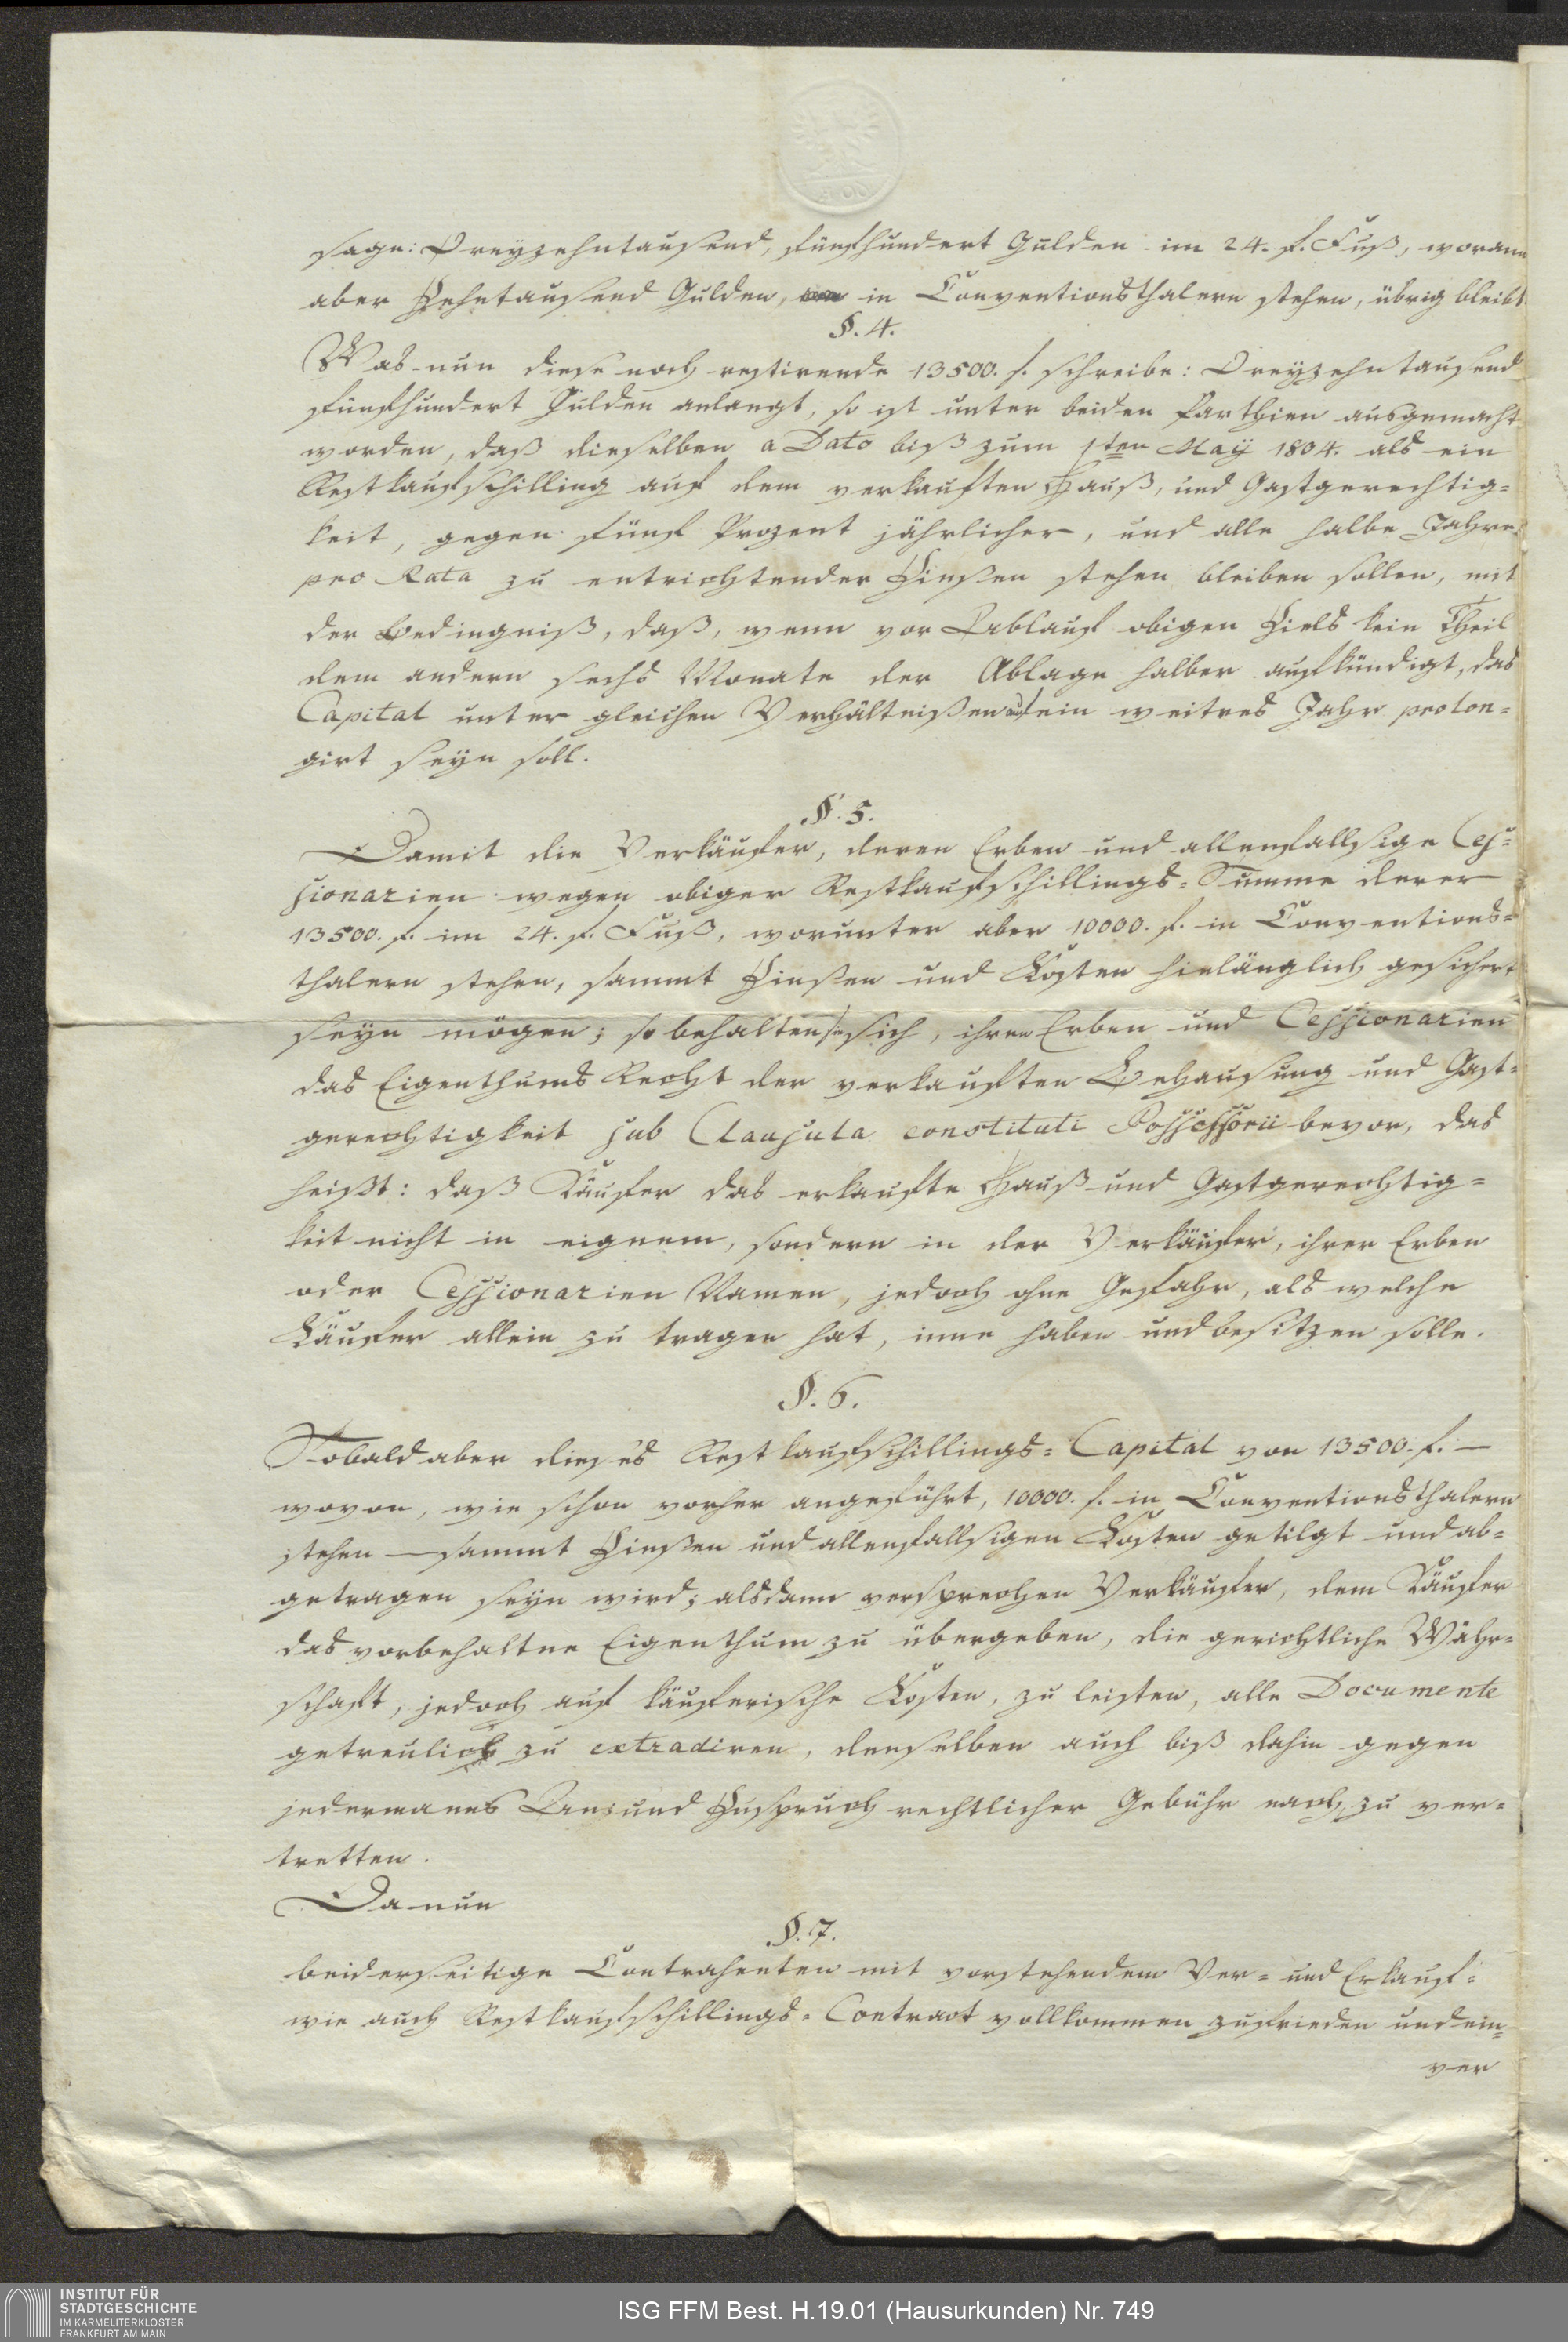 sage: Dreyzehntausend, fünfhundert Gulden im 24. f. Fuß, worann
aber Zehntausend Gulden, in Conventionsthalern stehen, übrig bleibt
§. 4.
Was nun diese noch restirende 13500. f. schreibe: Dreyzehntausend
fünfhundert Gulden anlangt, so ist unter beiden Parthien ausgemacht
worden, daß dieselben a Dato biß zum 1ten May 1804. als ein
Restkaufschilling auf dem verkauften Hauß, und Gastgerechtig-
keit, gegen fünf Prozent jährlicher, und alle halbe Jahre
pro Rata zu entrichtender Zinßen stehen bleiben sollen, mit
der Bedingniß, daß, wenn vor Ablauf obigen Ziels kein Theil
dem andern sechs Monate der Ablage halber aufkündigt, das
Capital unter gleichen Verhältnißen auf ein weitres Jahr prolon-
girt seyn soll.
§. 5.
Damit die Verkäufer, deren Erben und allenfallsige Ces-
sionarien wegen obiger Restkaufschillings-Summe derer
13500. f. im 24. f. Fuß, worunter aber 10000. f. in Conventions-
thalern stehen, sammt Zinßen und Kosten hinlänglich gesichert
seyn mögen; so behalten sie sich, ihren Erben und Cessionarien
das Eigenthums Recht der verkauften Behausung und Gast-
gerechtigkeit sub Clausula constituti Possessorii bevor, das
heißt: daß Käufer das erkaufte Hauß und Gastgerechtig-
keit nicht in eignem, sondern in der Verkäufer, ihrer Erben
oder Cessionarien Namen, jedoch ohne Gefahr, als welche
Käufer allein zu tragen hat, inne haben und besitzen solle.
§. 6.
Sobald aber dieses Restkaufschillings-Capital von 13500. f. —
wovon, wie schon vorher angeführt, 10000. f. in Conventionsthalern
stehen — sammt Zinßen und allenfallsigen Kosten getilgt und ab-
getragen seyn wird; alsdann versprechen Verkäufer, dem Käufer
das vorbehaltne Eigenthum zu übergeben, die gerichtliche Währ-
schaft, jedoch auf käuferische Kosten, zu leisten, alle Documente
getreulich zu extradiren, denselben auch biß dahin gegen
jedermanns An- und Zuspruch rechtlicher Gebühr nach, zu ver-
tretten.
Da nun
§. 7.
beiderseitige Contrahenten mit vorstehendem Ver- und Erkauf-
wie auch Restkaufschillings-Contract vollkommen zufrieden und ein-
ver
INSTITUT FÜR
STADTGESCHICHTE
IM KARMELITERKLOSTER
FRANKFURT AM MAIN
ISG FFM Best. H.19.01 (Hausurkunden) Nr. 749